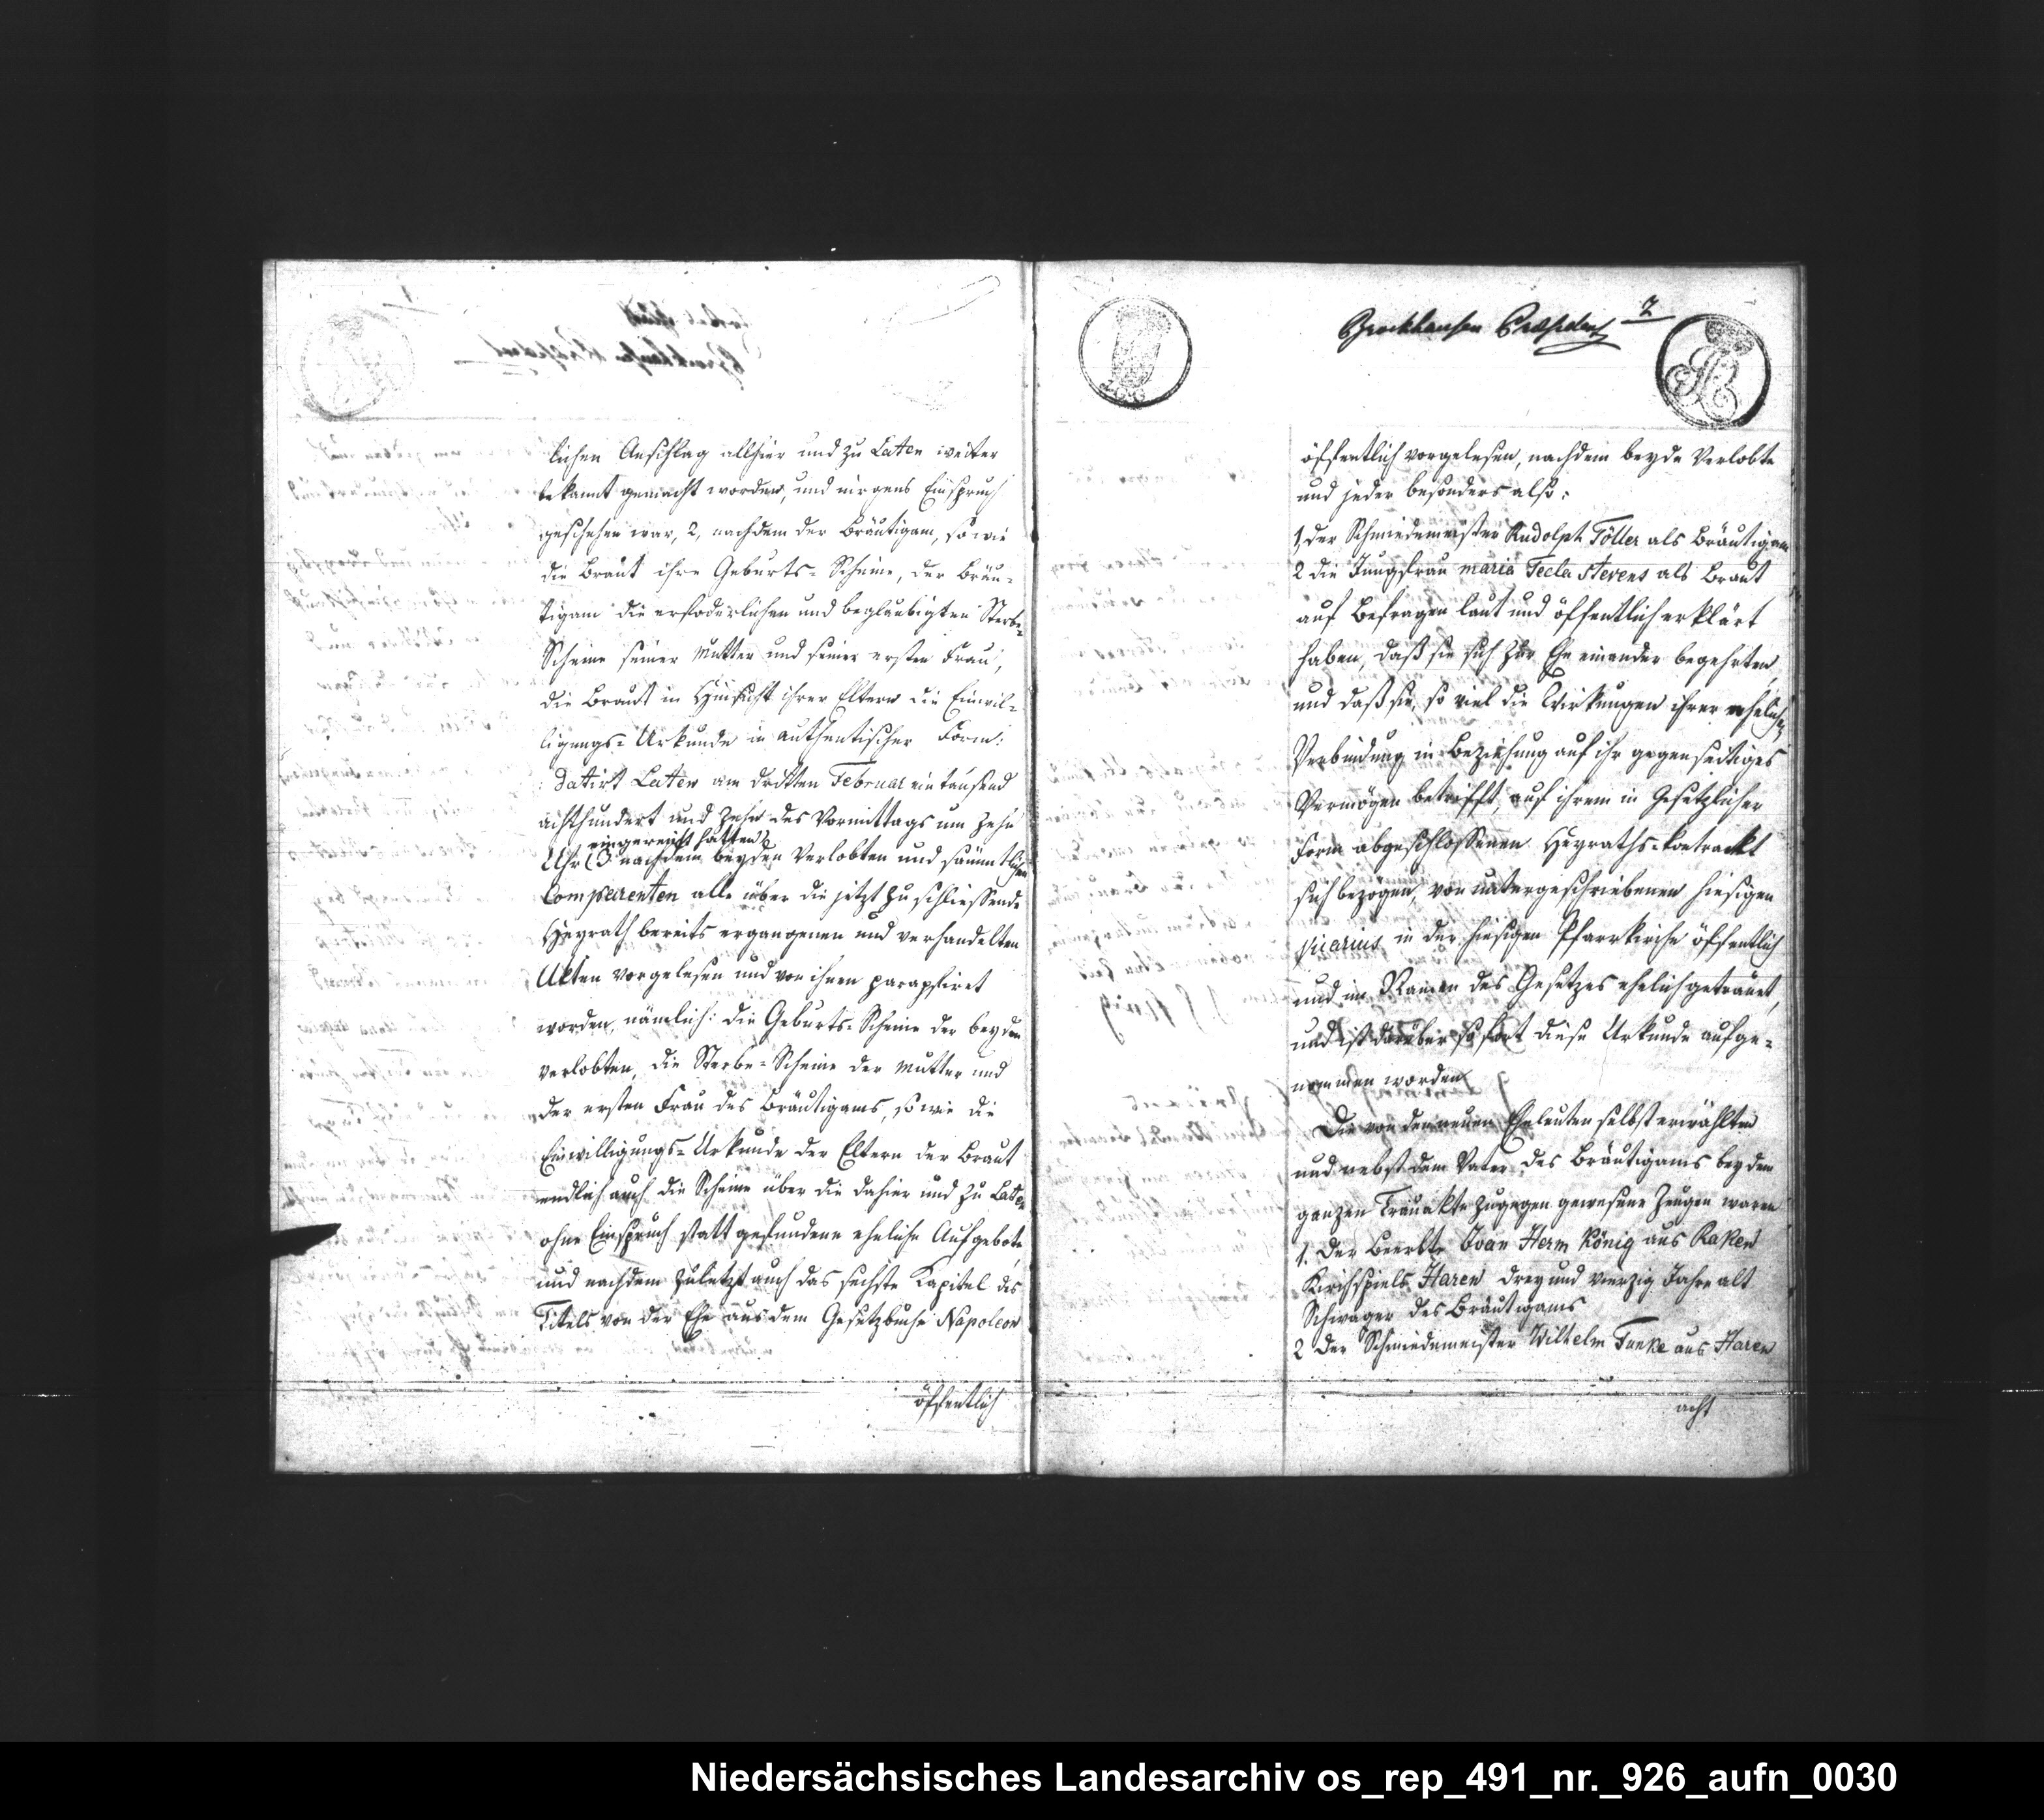 lichen Anschlag allhier und zu Laten weiter
bekannt gemacht worden, und nirgens Einspruch
geschehen war, 2, nachdem der Bräutigam, so wie
die Braut ihre Geburts-Scheine, der Bräu-
tigam die erfoderlichen und beglaubigten Sterbe-
Scheine seiner Mutter und seiner ersten Frau,
die Braut in Hinsicht ihrer Eltern die Einwil-
ligungs-Urkunde in authentischer Form:
: Datirt Laten am dritten Februar ein tausend
achthundert und zehn des Vormittags um zehn
eingereicht hatten
Uhr (3 nachdem beyden Verlobten und sämmtlichen
Comparenten alle über die jetzt zu schliessende
Heyrath bereits ergangenen und verhandelten
Akten vorgelesen und von ihnen paraphiret
worden, nämlich: die Geburts-Scheine der beyden
verlobten, die Sterbe-Scheine der Mutter und
der ersten Frau des Bräutigams, so wie die
Einwilligungs-Urkunde der Eltern der Braut
endlich auch die Scheine über die dahier und zu Laten
ohne Einspruch statt gefundene eheliche Aufgebote
und nachdem zuletzt auch das sechste Kapitel des
Titels von der Ehe aus dem Gesetzbuche Napoleon
öffentlich
Brockhausen Præsident
2
100
öffentlich vorgelesen, nachdem beyde Verlobte
und jeder besonders also:
1, der Schmiedemeister Rudolph Töller als Bräutigam
2 die Jungfrau maria Tecla Stevens als Braut
auf Befragen laut und öffentlich erklärt
haben, daß sie sich zur Ehe einander begehrten,
und daß sie, so viel die Wirkungen ihrer ehelichen
Verbindung in Beziehung auf ihr gegenseitiges
Vermögen betrifft, auf ihrem in Gesetzlicher
Form abgeschlossenen Heyraths-kontrackt
sich bezögen, von untergeschriebenen hiesigen
vicarius in der hiesigen Pfarrkirche öffentlich
und im Namen des Gesetzes ehelich getrauet,
und ist darüber sofort diese Urkunde aufge-
nommen worden
Die von den neuen Eheleuten selbst erwählten
und nebst dem Vater des Bräutigams bey dem
ganzen Trauakte zugegen gewesene Zeugen waren
1. Der Beerbte Joan Herm König aus Raken
Kirchspiels Haren drey und vierzig Jahre alt
Schwager des Bräutigams
2 Der Schmiedemeister Wilhelm Funke aus Haren
acht
Niedersächsisches Landesarchiv os_rep_491_nr._926_aufn_0030